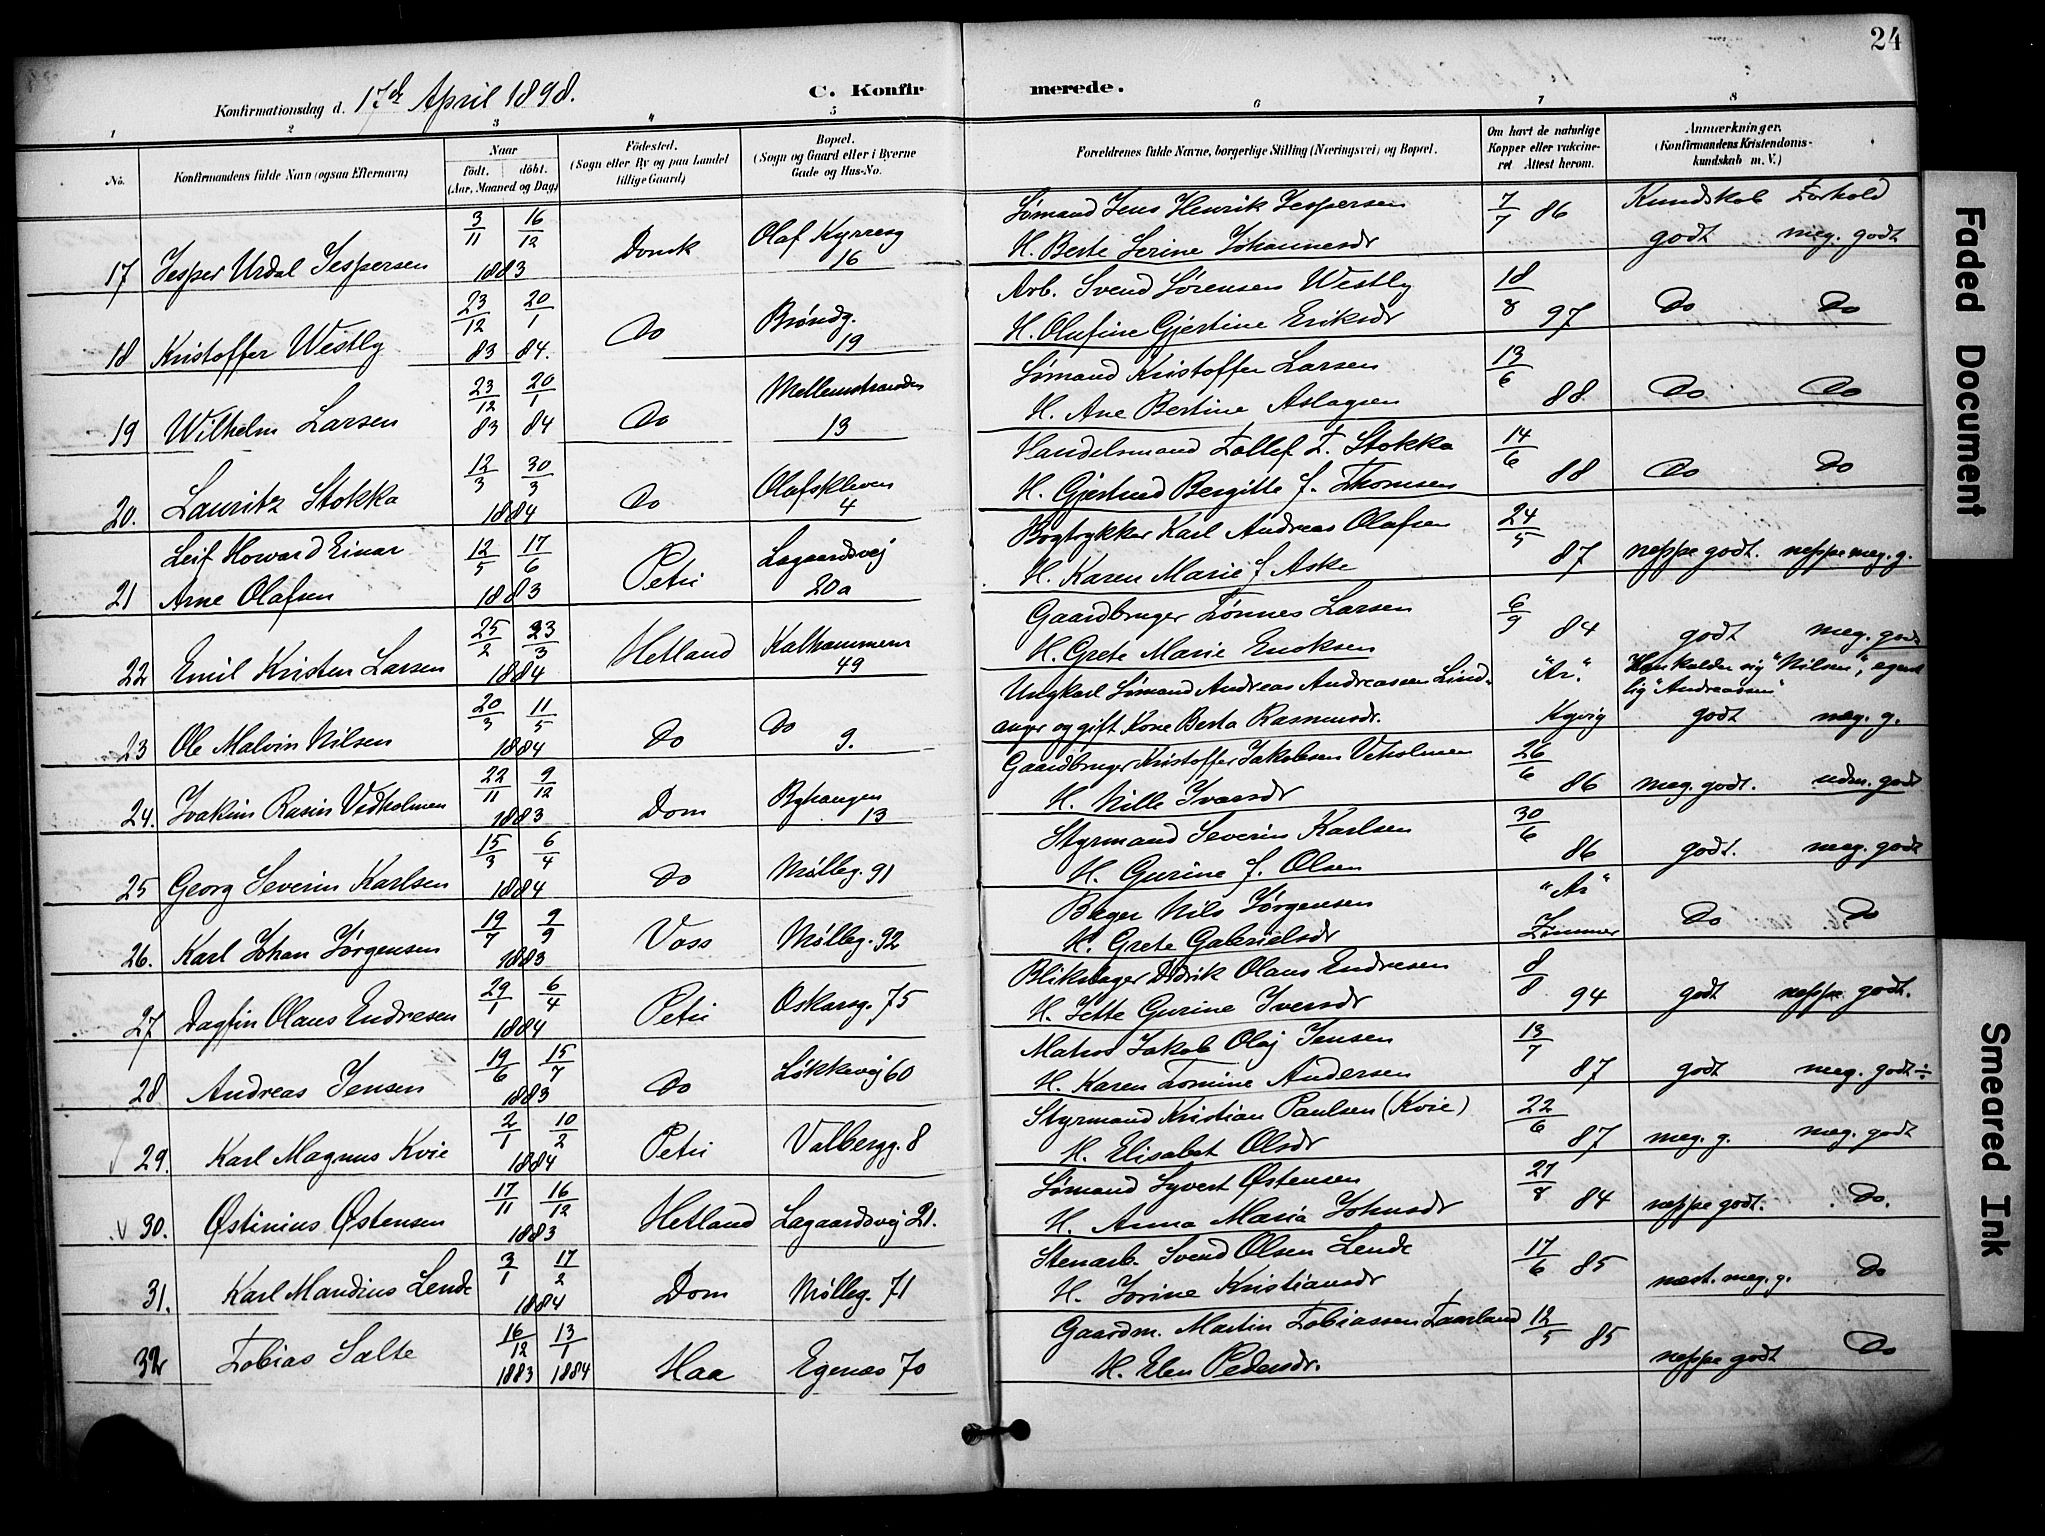 24
Konfirmationsdag d. 17de April 1898.
C. Konfirmerede.
1 2 3 4 5 6 7 8
No.
Konfirmandens fulde Navn (ogsaa Efternavn)
Naar
født. døbt.
(Aar, Maaned og Dag)
Fødested.
(Sogn eller By og paa Landet
tillige Gaard)
Bopæl.
(Sogn og Gaard eller i Byerne
Gade og Hus-No.
Forældrenes fulde Navne, borgerlige Stilling (Næringsvei) og Bopæl.
Om havt de naturlige
Kopper eller vaccine-
ret Attest herom.
Anmærkninger.
(Konfirmandens Kristendoms-
kundskab m. V.)
Kundskab Forhold
17 Jesper Urdal Jespersen 3/11 16/12 1883 Domk Olaf Kyrresg 16
Sømand Jens Henrik Jespersen
H. Berte Serine Johannesdr 7/7 86 godt meg. godt
18 Kristoffer Westly 23/12 83 20/1 84. Do Brøndg. 19
Arb. Svend Sørensen Westly
H. Olufine Gjertine Eriksdr 18/8 97 Do Do
19 Wilhelm Larsen 23/12 83 20/1 84 Do Mellemstranden 13
Sømand Kristoffer Larsen
H. Ane Bertine Aslagsen 13/6 88 Do Do
20. Lauritz Stokka 12/3 30/3 1884 Do Olafskleven 4
Handelsmand Tollef T. Stokka
H. Gjertrud Bergitte f. Thomsen 14/6 88 Do Do
21 Leif Howard Einar
Arne Olafsen 12/5 17/6 1883 Petri Lagaardsvej 20a
Bogtrykker Karl Andreas Olafsen
H. Karen Marie f Aske 24/5 87 neppe godt. neppe meg. g.
22 Emil Kristen Larsen 25/2 23/3 1884 Hetland Kalhammeren 49
Gaardbruger Tønnes Larsen
H. Grete Marie Enoksen 6/9 84 godt meg. godt
23 Ole Malvin Nilsen 20/3 11/5 1884 Do Do 9.
Ungkarl Sømand Andreas Andreassen Lind-
anger og gift Kone Berta Rasmusdr. "Ar." Kyvig
Han kalder sig "Nilsen", egent
lig "Andreassen"
godt meg. g.
24. Joakim Rasin Vedholmen 22/11 9/12 1883 Dom Byhaugen 13
Gaardbruger Kristoffer Jakobsen Veholmen
H. Nille Ivarsdr 26/6 86 meg. godt. udm. godt
25 Georg Severin Karlsen 15/3 6/4 1884 Do Mølleg. 91
Styrmand Severin Karlsen
H. Gurine f. Olsen 30/6 86 godt. meg. godt
26. Karl Johan Jørgensen 19/7 9/9 1883 Voss Mølleg. 92
Bager Nils Jørgensen
H. Grete Gabrielsdr "Ar" Zimmer Do Do
27 Dagfin Olaus Endresen 29/1 6/4 1884 Petri Oskarsg. 75
Blikslager Didrik Olaus Endresen
H. Jette Gurine Iversdr 8/8 94 godt neppe godt.
28 Andreas Jensen 19/6 15/7 1883 Do Løkkevej 60
Matros Jakob Olaj Jensen
H. Karen Tomine Andersen 13/7 87 godt meg. godt÷
29. Karl Magnus Kvie 2/1 10/2 1884 Petri Valbergg. 8
Styrmand Kristian Paulsen (Kvie)
H. Elisabet Olsdr 22/6 87 meg. g. meg. godt
v 30. Østinius Østensen 17/11 16/12 1883 Hetland Lagaardsvej 21.
Sømand Syvert Østensen
H. Anna Maria Johnsdr 27/8 84 neppe godt. do.
31. Karl Mandius Lende 3/1 17/2 1884 Dom Mølleg. 71
Stenarb. Svend Olsen Lende
H. Jorine Kristiansdr 17/6 85 næst. meg. g. Do
32 Tobias Salte 16/12 1883 13/1 1884 Haa Egenæs 70
Gaardm. Martin Tobiassen Taarland
H. Elen Pedersdr. 12/5 85 neppe godt Do
Faded Document
Smeared Ink